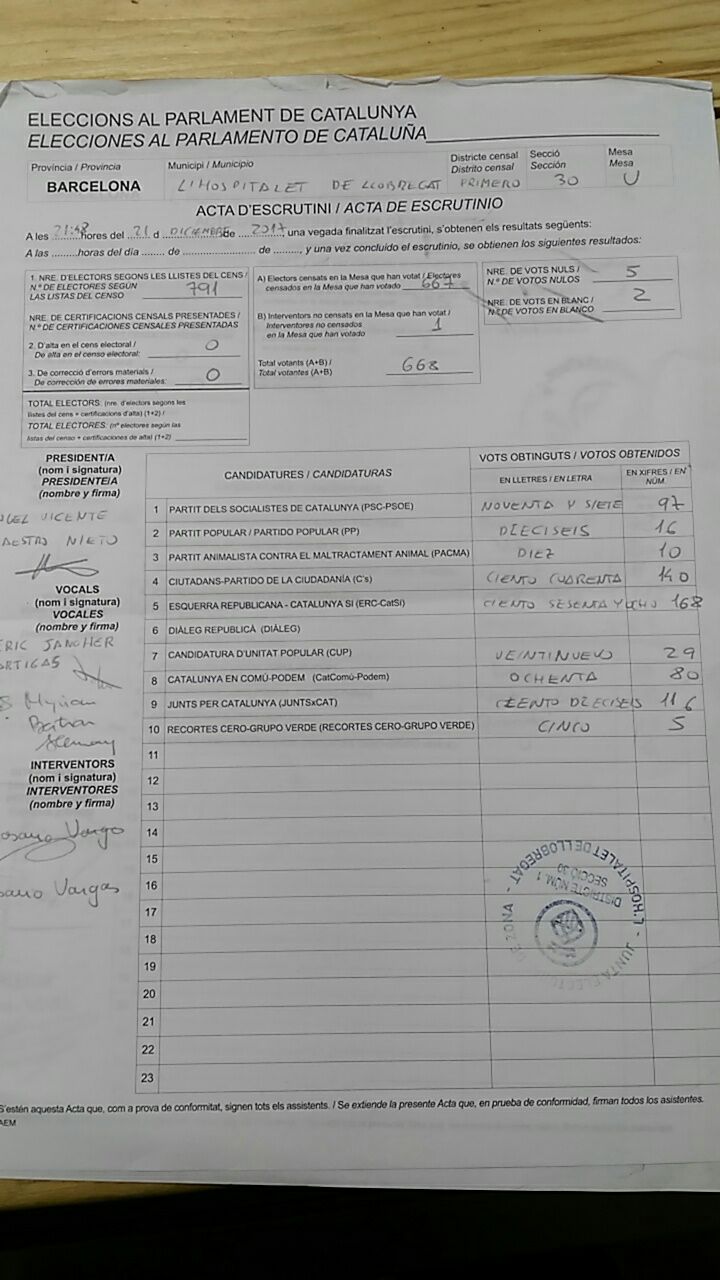 ELECCIONS AL PARLAMENT DE CATALUNYA
ELECCIONES AL PARLAMENTO DE CATALUÑA
Província / Provincia Municipi / Municipio Districte censal Secció Mesa
Distrito censal Sección Mesa
BARCELONA L'HOSPITALET DE LLOBREGAT PRIMERO 30 U
ACTA D'ESCRUTINI / ACTA DE ESCRUTINIO
A les 21:48 hores del 21 d DICIEMBRE de 2017, una vegada finalitzat l'escrutini, s'obtenen els resultats següents:
A las ........horas del día ...... de ............... de ........, y una vez concluido el escrutinio, se obtienen los siguientes resultados:
1. NRE. D'ELECTORS SEGONS LES LLISTES DEL CENS /
N.º DE ELECTORES SEGÚN
LAS LISTAS DEL CENSO 791
NRE. DE CERTIFICACIONS CENSALS PRESENTADES /
N.º DE CERTIFICACIONES CENSALES PRESENTADAS
2. D'alta en el cens electoral /
De alta en el censo electoral: 0
3. De correcció d'errors materials /
De corrección de errores materiales: 0
TOTAL ELECTORS: (nre. d'electors segons les
llistes del cens + certificacions d'alta) (1+2) /
TOTAL ELECTORES: (nº electores según las
listas del censo + certificaciones de alta) (1+2)
A) Electors censats en la Mesa que han votat / Electores
censados en la Mesa que han votado 667
B) Interventors no censats en la Mesa que han votat /
Interventores no censados
en la Mesa que han votado 1
Total votants (A+B) /
Total votantes (A+B) 668
NRE. DE VOTS NULS /
N.º DE VOTOS NULOS 5
NRE. DE VOTS EN BLANC /
N.º DE VOTOS EN BLANCO 2
PRESIDENT/A
(nom i signatura)
PRESIDENTE/A
(nombre y firma)
VICENTE
NIETO
VOCALS
(nom i signatura)
VOCALES
(nombre y firma)
SANCHER
Myriam
INTERVENTORS
(nom i signatura)
INTERVENTORES
(nombre y firma)
Vargas
Vargas
CANDIDATURES / CANDIDATURAS VOTS OBTINGUTS / VOTOS OBTENIDOS
EN LLETRES / EN LETRA EN XIFRES / EN NÚM.
1 PARTIT DELS SOCIALISTES DE CATALUNYA (PSC-PSOE) NOVENTA Y SIETE 97
2 PARTIT POPULAR / PARTIDO POPULAR (PP) DIECISEIS 16
3 PARTIT ANIMALISTA CONTRA EL MALTRACTAMENT ANIMAL (PACMA) DIEZ 10
4 CIUTADANS-PARTIDO DE LA CIUDADANÍA (C's) CIENTO CUARENTA 140
5 ESQUERRA REPUBLICANA - CATALUNYA SÍ (ERC-CatSí) CIENTO SESENTA Y OCHO 168
6 DIÀLEG REPUBLICÀ (DIÀLEG)
7 CANDIDATURA D'UNITAT POPULAR (CUP) VEINTINUEVO 29
8 CATALUNYA EN COMÚ-PODEM (CatComú-Podem) OCHENTA 80
9 JUNTS PER CATALUNYA (JUNTSxCAT) CIENTO DIECISEIS 116
10 RECORTES CERO-GRUPO VERDE (RECORTES CERO-GRUPO VERDE) CINCO 5
11
12
13
14
15
16
17
18
19
20
21
22
23
L'HOSPITALET DE LLOBREGAT - JUNTA ELECTORAL DE ZONA -
DISTRICTE NÚM. 1
SECCIÓ 30
S'estén aquesta Acta que, com a prova de conformitat, signen tots els assistents. / Se extiende la presente Acta que, en prueba de conformidad, firman todos los asistentes.
AEM